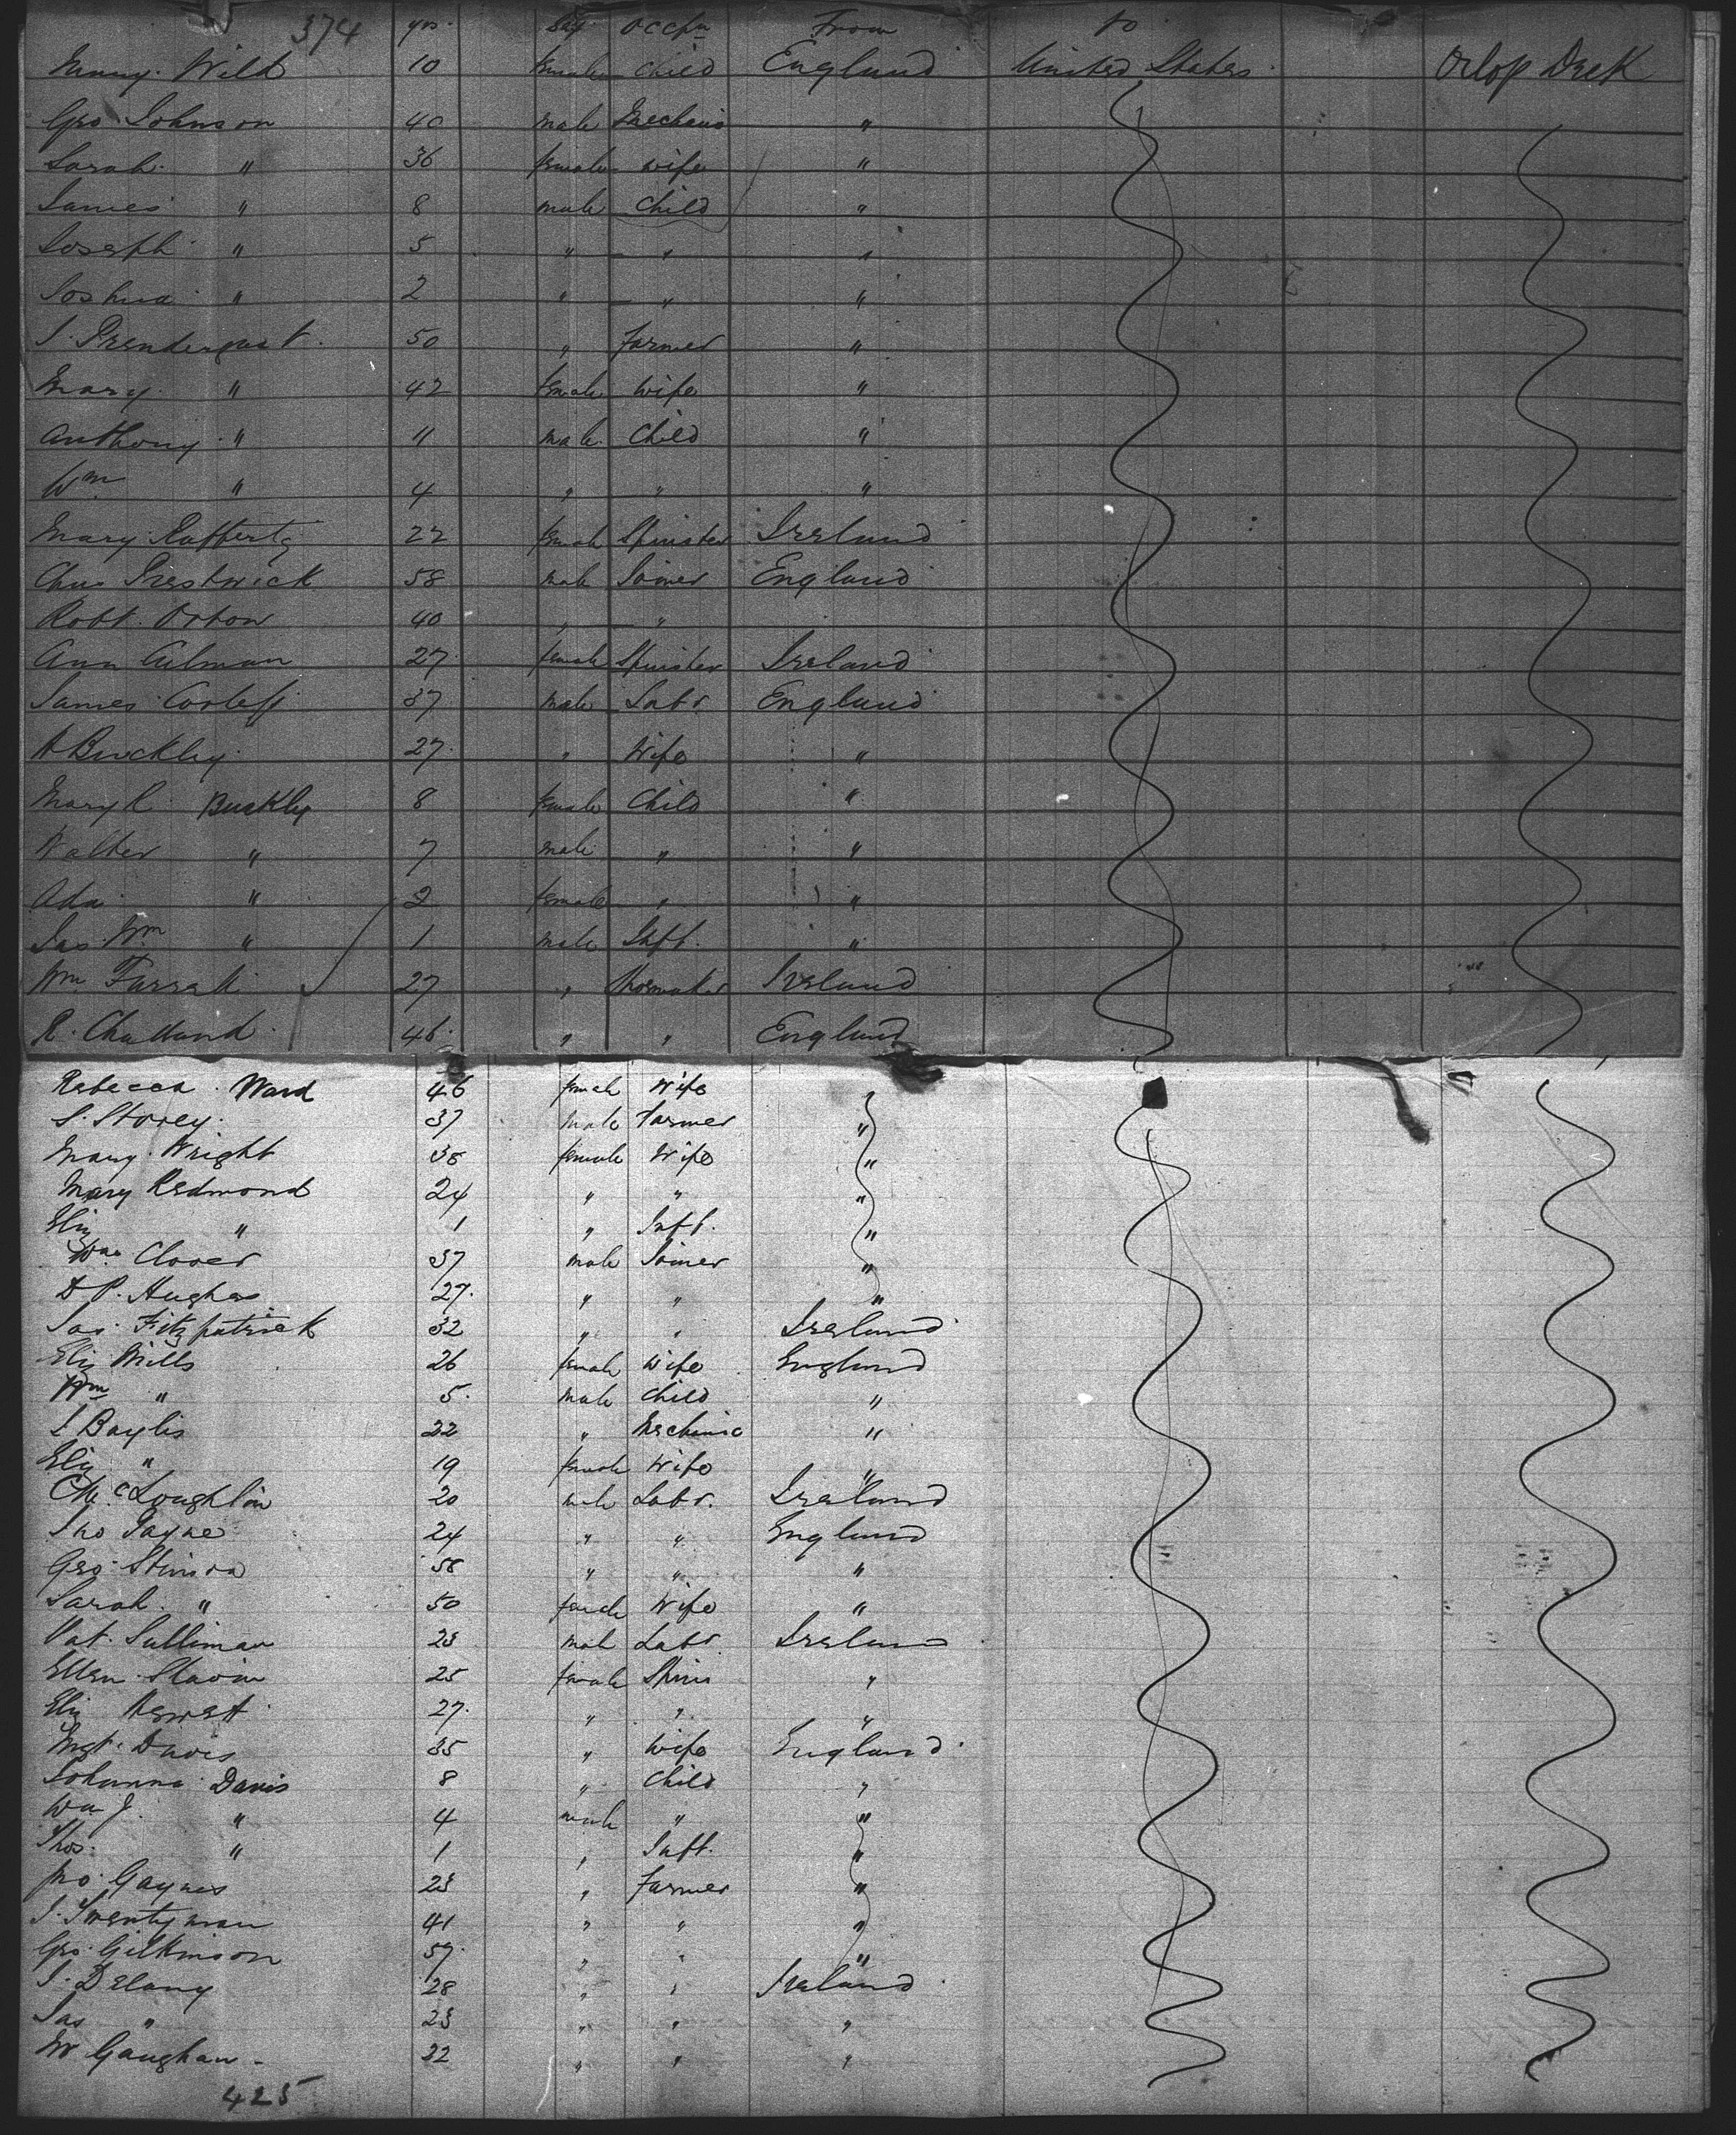 374 yrs. Sex Occpn From to
Wild 10 female child England United States Orlop Deck
Geo Johnson 40 male Mechanic "
Sarah " 36 female wife "
James " 8 male Child "
Joseph " 5 " " "
Joshua " 2 " " "
J. Prendergast. 50 " farmer "
Mary " 42 female wife "
Anthony " 11 male Child "
Wm " 4 " " "
Mary Rafferty 22 female Spinster Ireland
Chas Prestwick 58 male Joiner England
Robt. Orton 40 " "
Ann 27 female Spinster Ireland
James 37 male Labr. England
A Buckley 27. " Wife "
Mary Buckley 8 female Child "
Walter " 7 male " "
Ada " 2 female " "
Jas. Wm " 1 male Inft. "
Wm 27 " Shoemaker Ireland
R. 46. " " England
Rebecca. Ward 46 female Wife "
S. Storey. 37 male farmer "
Mary Wright 38 female Wife "
Mary Redmond 24 " " "
Eliz " 1 " Inft. "
Wm Clover 37 male Joiner "
D P. Hughes 27. " " "
Jas. Fitzpatrick 32 " " Ireland
Eliz Mills 26 female wife England
Wm " 5. male child "
J Baylis 22 " Mechanic "
Eliz " 19 female Wife "
C McLoughlin 20 male Labr. Ireland
Jno Payne 24 " " England
Geo. 58 " " "
Sarah. " 50 female Wife "
Pat. Sullivan 23 male Labr Ireland
Ellen Slavin 25 female Spins "
Eliz 27. " " "
Mgt. Davis 35 " Wife England
Johanna Davis 8 " Child "
Wm J. " 4 male " "
Thos. " 1 " Inft. "
Jno. Gaynes 23 " farmer "
J. Twentyman 41 " " "
Geo. Gilkinson 57. " " "
J. Delany 28 " " Ireland
Jas " 23 " " "
M Gaughan 22 " " "
425